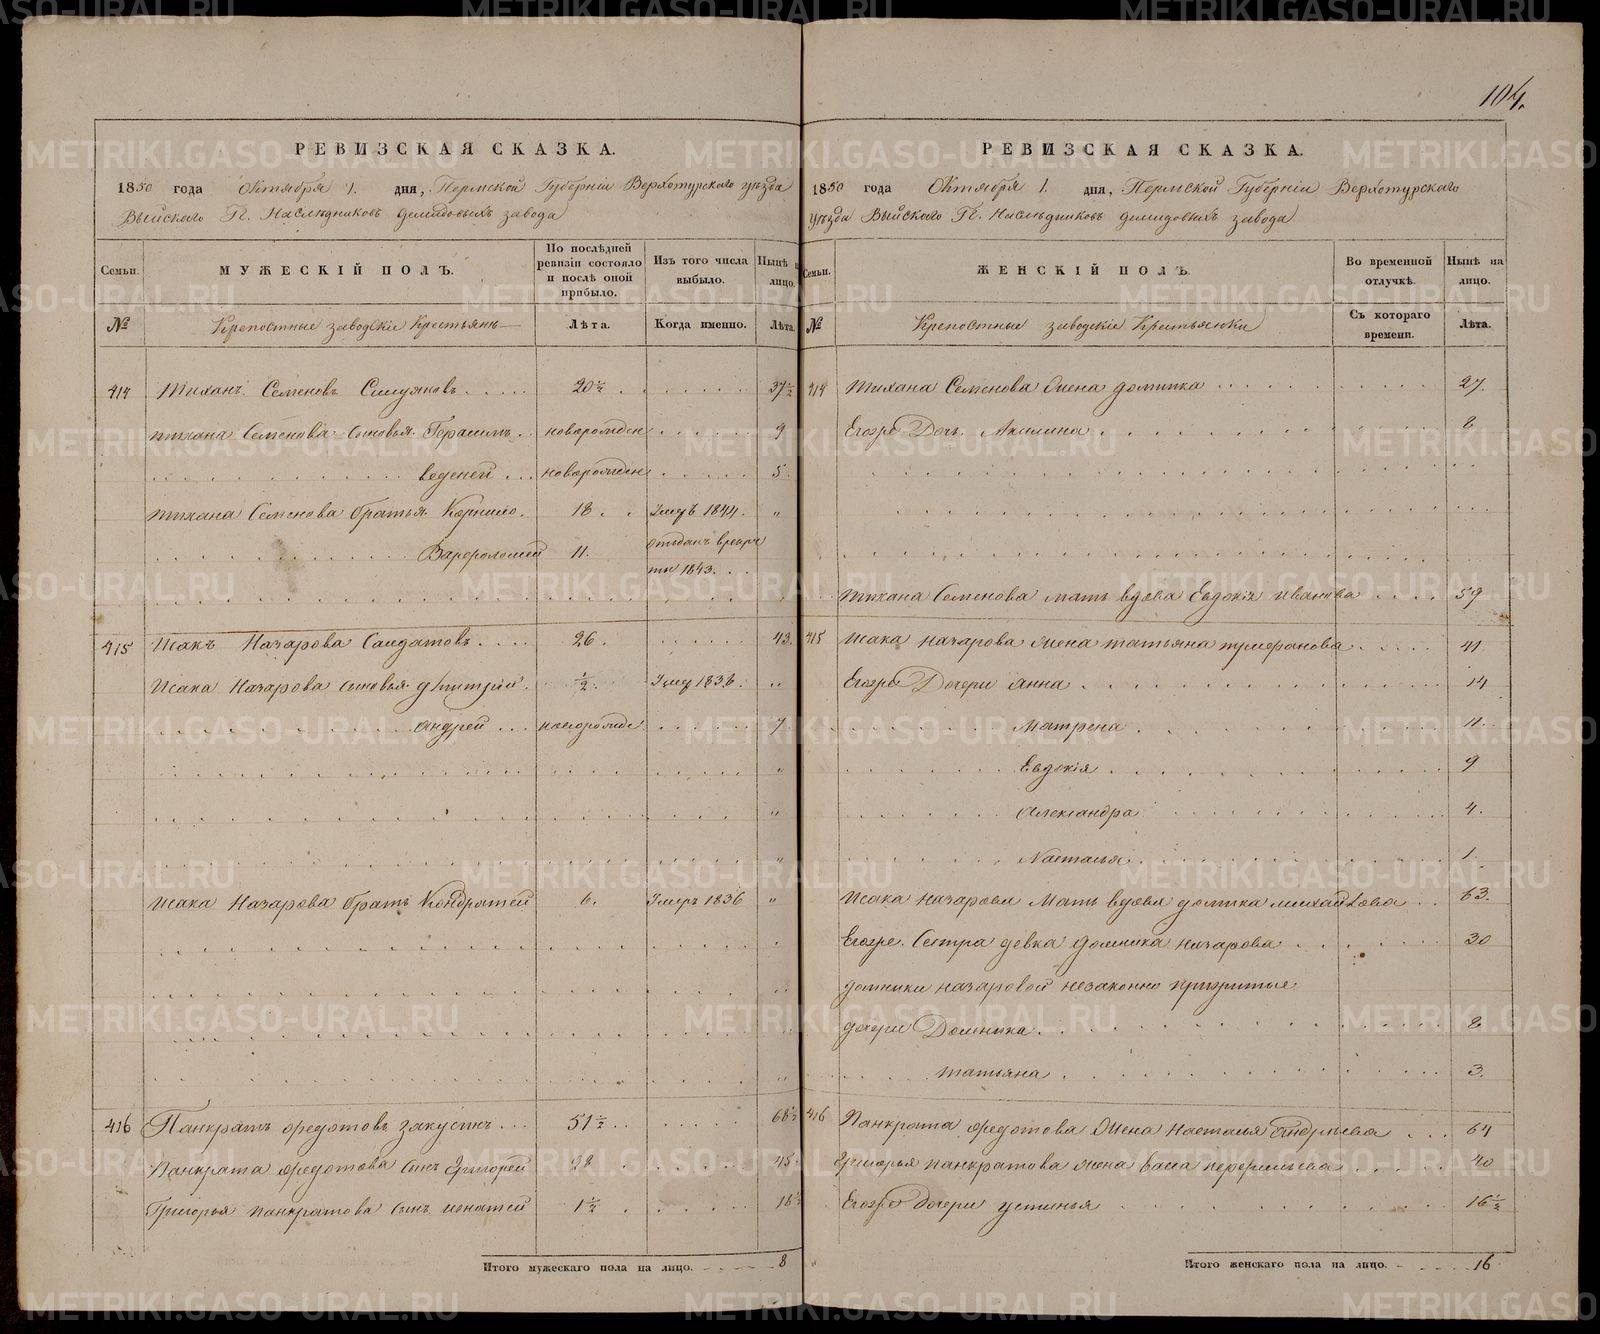 104.
РЕВИЗСКАЯ СКАЗКА.
1850 года Октября 1. дня, Пермской Губерніи Верхотурскаго уѣзда
Выйскаго Г. Наслѣдниковъ Демидовыхъ завода
Семьи.
МУЖЕСКІЙ ПОЛЪ.
По послѣдней ревизіи состояло и послѣ оной прибыло.
Изъ того числа выбыло.
Нынѣ на лицо.
№
Крепостные заводскіе Крестьянъ
Лѣта.
Когда именно.
Лѣта.
414 Тиханъ Семеновъ 20½ 37½
тихана Семенова сыновья Герасимъ новорожден 9
веденей новорожден 5
тихана Семенова братья Корнило 18 Умеръ 1844. "
Варфоломей 11. отданъ врекру
ты 1843.
415 Исакъ Назарова Салдатовъ 26. 43.
Исака Назарова сыновья дмитрий ½ Умер 1836. "
андрей новорожде 7
Исака Назарова братъ Кондратей 6. Умеръ 1836 "
416 Панкратъ Федотовъ Закусинъ 51½ 68½
Панкрата Федотова сынъ Григорей 28 45.
Григорья Панкратова сынъ игнатей 1½ 18½
Итого мужескаго пола на лицо. 8
РЕВИЗСКАЯ СКАЗКА.
1850 года Октября 1. дня, Пермской Губерніи Верхотурскаго
уѣзда Выйскаго Г. Наслѣдниковъ Демидовыхъ завода
Семьи.
ЖЕНСКІЙ ПОЛЪ.
Во временной отлучкѣ.
Нынѣ на лицо.
№
Крепостные заводскіе Крестьянки
Съ котораго времени.
Лѣта.
414 Тихана Семенова жена домника 27.
Егоже Дочь Акилина 8
тихана Семенова мать вдова Евдокія иванова 59
415 Исака Назарова жена татьяна 41
Егоже Дочери Анна 14
Матрена 11.
Евдокія 9
Александра 4.
Насталья 1.
Исака Назарова Мать вдова домника михайлова 63.
Егоже Сестра девка домника назарова 30
домники назаровой незаконно прижитые
дочери Домника 8
татьяна 3.
416 Панкрата Федотова жена Насталья андрѣева 64
Григорья Панкратова жена васа перфильева 40
Егоже Дочери устинья 16½
Итого женскаго пола на лицо. 16
METRIKI.GASO-URAL.RU